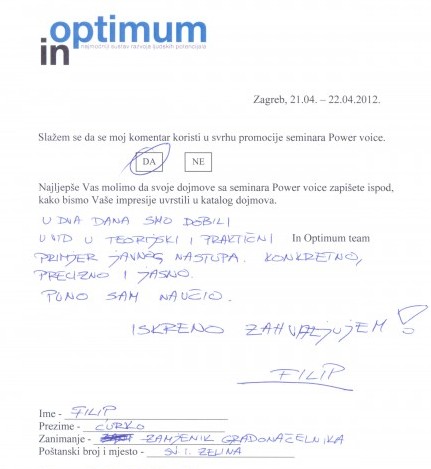 in optimum
najmoćniji sustav razvoja ljudskih potencijala
Zagreb, 21.04. – 22.04.2012.
Slažem se da se moj komentar koristi u svrhu promocije seminara Power voice.
DA NE
Najljepše Vas molimo da svoje dojmove sa seminara Power voice zapišete ispod,
kako bismo Vaše impresije uvrstili u katalog dojmova.
U DVA DANA SMO DOBILI
UVID U TEORIJSKI I PRAKTIČNI In Optimum team
PRIMJER JAVNOG NASTUPA. KONKRETNO,
PRECIZNO I JASNO.
PUNO SAM NAUČIO.
ISKRENO ZAHVALJUJEM!
FILIP
Ime - FILIP
Prezime - ĆURKO
Zanimanje - ZAMJENIK GRADONAČELNIKA
Poštanski broj i mjesto - SV. I. ZELINA